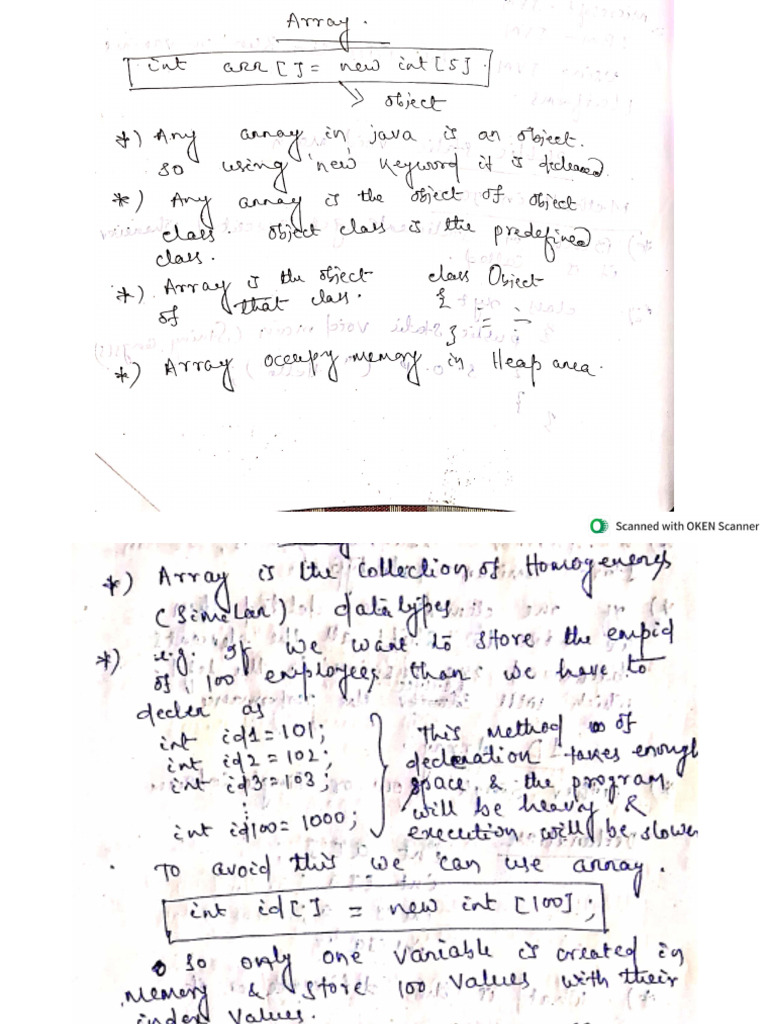 Array.
int arr[]= new int[5].
object
*) Any array in java is an object.
so using 'new' keyword it is declared
*) Any array is the object of object
class. object class is the predefined
class.
*) Array is the object
of that class.
class Object
{
}
*) Array occupy memory in Heap area.
Scanned with OKEN Scanner
*) Array is the collection of Homogeneous
(Similar) datatypes
*) e.g. If we want to store the empid
of 100 employees than we have to
decler as
int id1=101;
int id2=102;
int id3=103;
int id100=1000;
This method of
decleration takes enough
space & the program
will be heavy &
execution will be slower
To avoid this we can use array.
int id[] = new int [100];
so only one variable is created in
memory & store 100 values with their
index values.